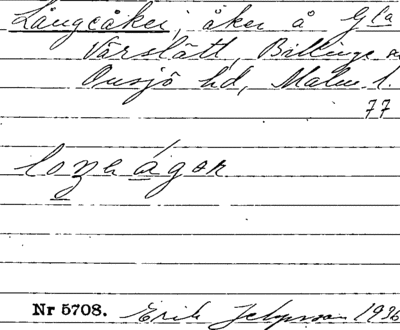 Långeåker; åker å Gla
Vårslätt, Billinge
Onsjö hd, Malm. l.
77
Nr 5708. Erik 1936